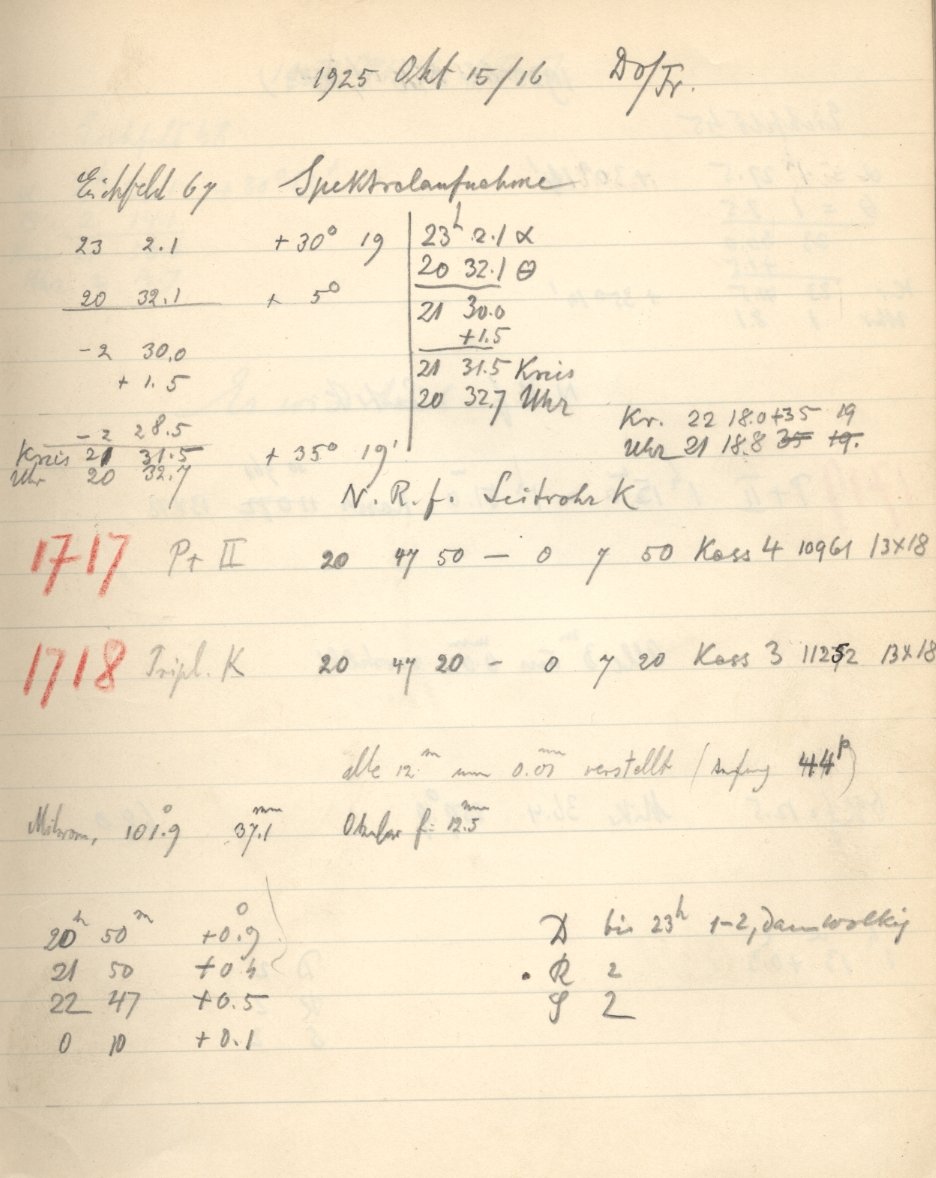 1925 Okt 15/16 Do/Fr.
Eichfeld 67 Spektralaufnahme
23 2.1 +30° 19
20 32.1 + 5°
-2 30.0
+ 1.5
-2 28.5
Kreis 21 31.5 +35° 19'
Uhr 20 32.7
23h 2.1 α
20 32.1 θ
21 30.0
+1.5
21 31.5 Kreis
20 32.7 Uhr
Kr. 22 18.0 +35 19
Uhr 21 18.8 35 19.
N. R. f. Leitrohr K
1717 Pt II 20 47 50 — 0 7 50 Kass 4 10961 13x18
1718 Tripl. K 20 47 20 — 0 7 20 Kass 3 11252 13x18
alle 12m um 0.01mm verstellt (Anfang 44p)
Mikrom. 101.9° 37.1mm Okular f: 12.5mm
20h 50m +0.9°
21 50 +0.4
22 47 +0.5
0 10 +0.1
D bis 23h 1-2, dann wolkig
R 2
S 2